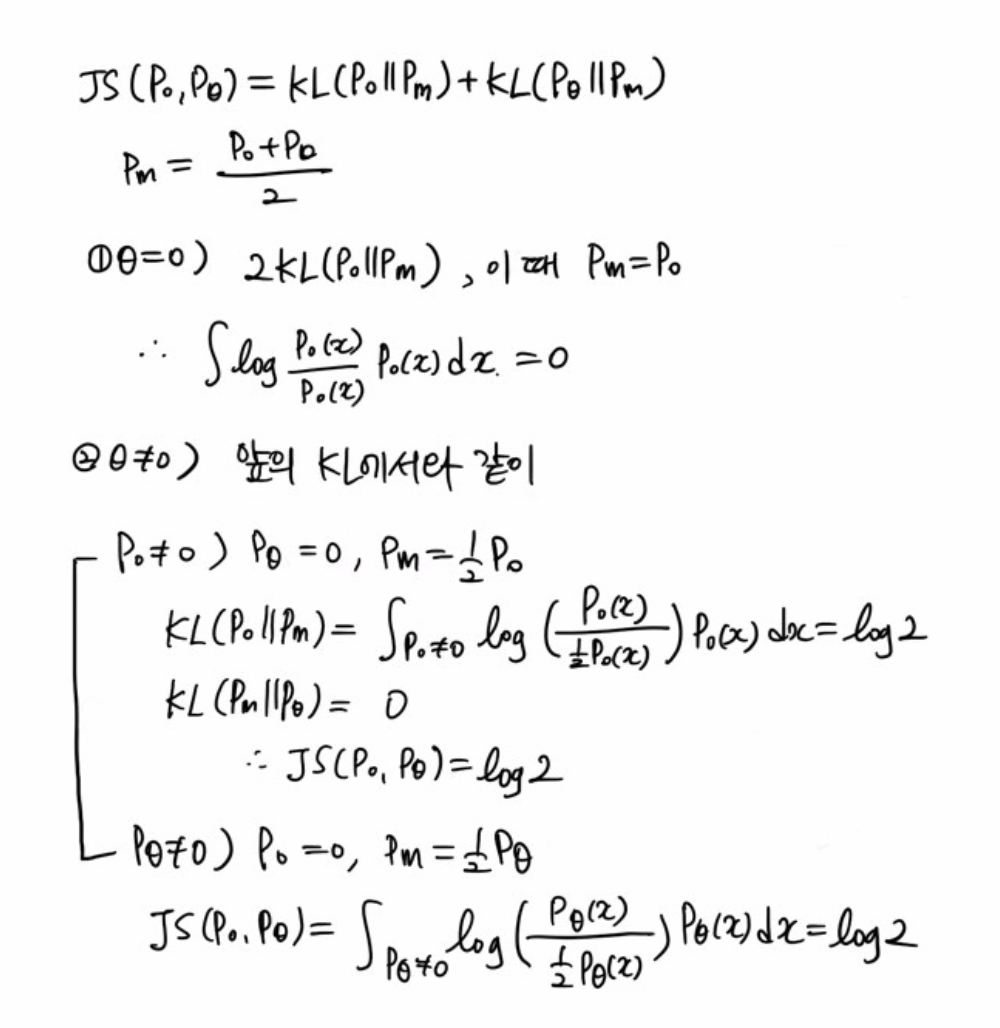 JS(P₀,Pθ) = KL(P₀||Pₘ)+KL(Pθ||Pₘ)
Pₘ = (P₀+Pθ)/2
①θ=0) 2KL(P₀||Pₘ), 이때 Pₘ=P₀
∴ ∫log (P₀(x)/P₀(x)) P₀(x)dx. =0
②θ≠0) 앞의 KL에서와 같이
P₀≠0) Pθ=0, Pₘ=½P₀
KL(P₀||Pₘ)= ∫_{P₀≠0} log (P₀(x)/(½P₀(x))) P₀(x)dx=log2
KL(Pₘ||Pθ)= 0
∴ JS(P₀,Pθ)=log2
Pθ≠0) P₀=0, Pₘ=½Pθ
JS(P₀,Pθ)= ∫_{Pθ≠0} log (Pθ(x)/(½Pθ(x))) Pθ(x)dx=log2